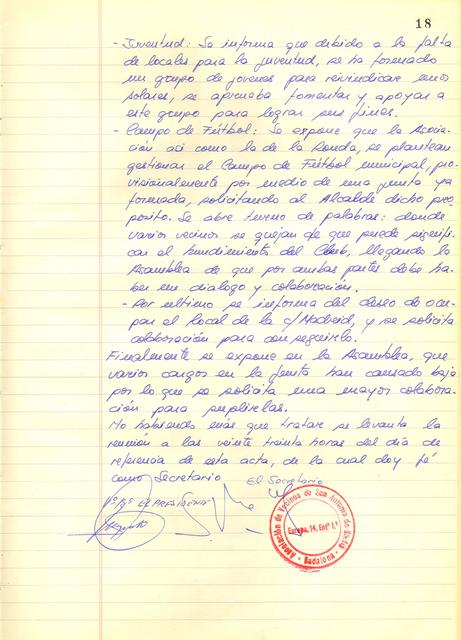 18
- Juventud: Se informa que debido a la falta
de locales para la juventud, se ha formado
un grupo de jovenes para reivindicar unos
solares, se aprueba fomentar y apoyar a
este grupo para lograr sus fines.
- Campo de Fútbol: Se expone que la Asocia-
ción asi como la de la Ronda, se plantean
gestionar el Campo de Fútbol municipal, pro-
visionalmente por medio de una junta ya
formada, solicitando al Alcalde dicho pro-
posito. Se abre turno de palabras: donde
varios vecinos se quejan de que puede signifi-
car el hundimiento del Club, llegando la
Asamblea de que por ambas partes debe ha-
ber un dialogo y colaboración.
- Por ultimo se informa del deseo de ocu-
par el local de la c/Madrid, y se solicita
colaboración para conseguirlo.
Finalmente se expone en la Asamblea, que
varios cargos en la Junta han causado baja
por lo que se solicita una mayor colabora-
ción para suplirlas.
No habiendo más que tratar se levanta la
reunión a las veinte treinta horas del día de
referencia de esta acta, de la cual doy fé
como Secretario
El Secretario
Vº Bº EL PRESIDENTE
Asociación de Vecinos de San Antonio de
Europa, 14, Entº 1ª
- Badalona -